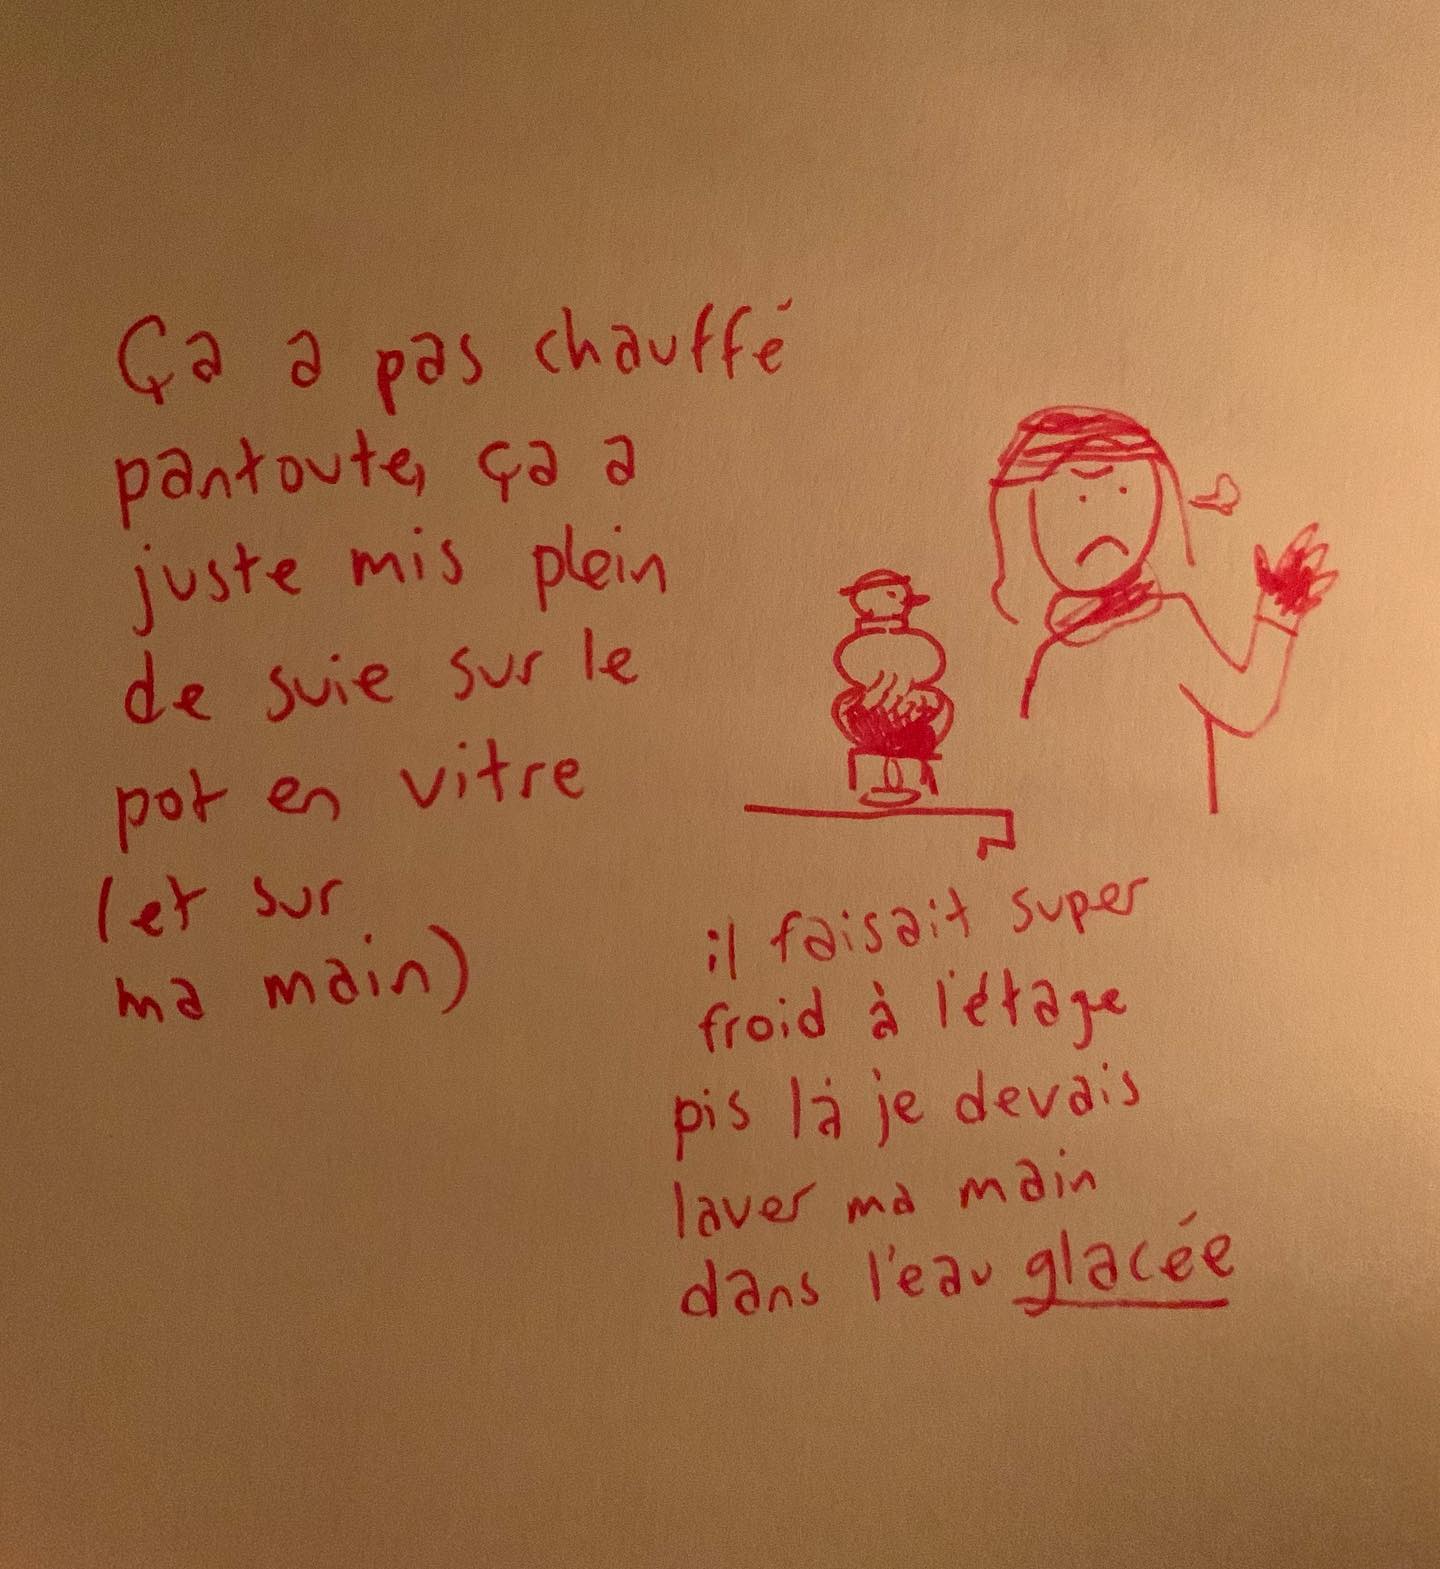 Ça a pas chauffé
pantoute, ça a
juste mis plein
de suie sur le
pot en vitre
(et sur
ma main)
il faisait super
froid à l'étage
pis là je devais
laver ma main
dans l'eau glacée